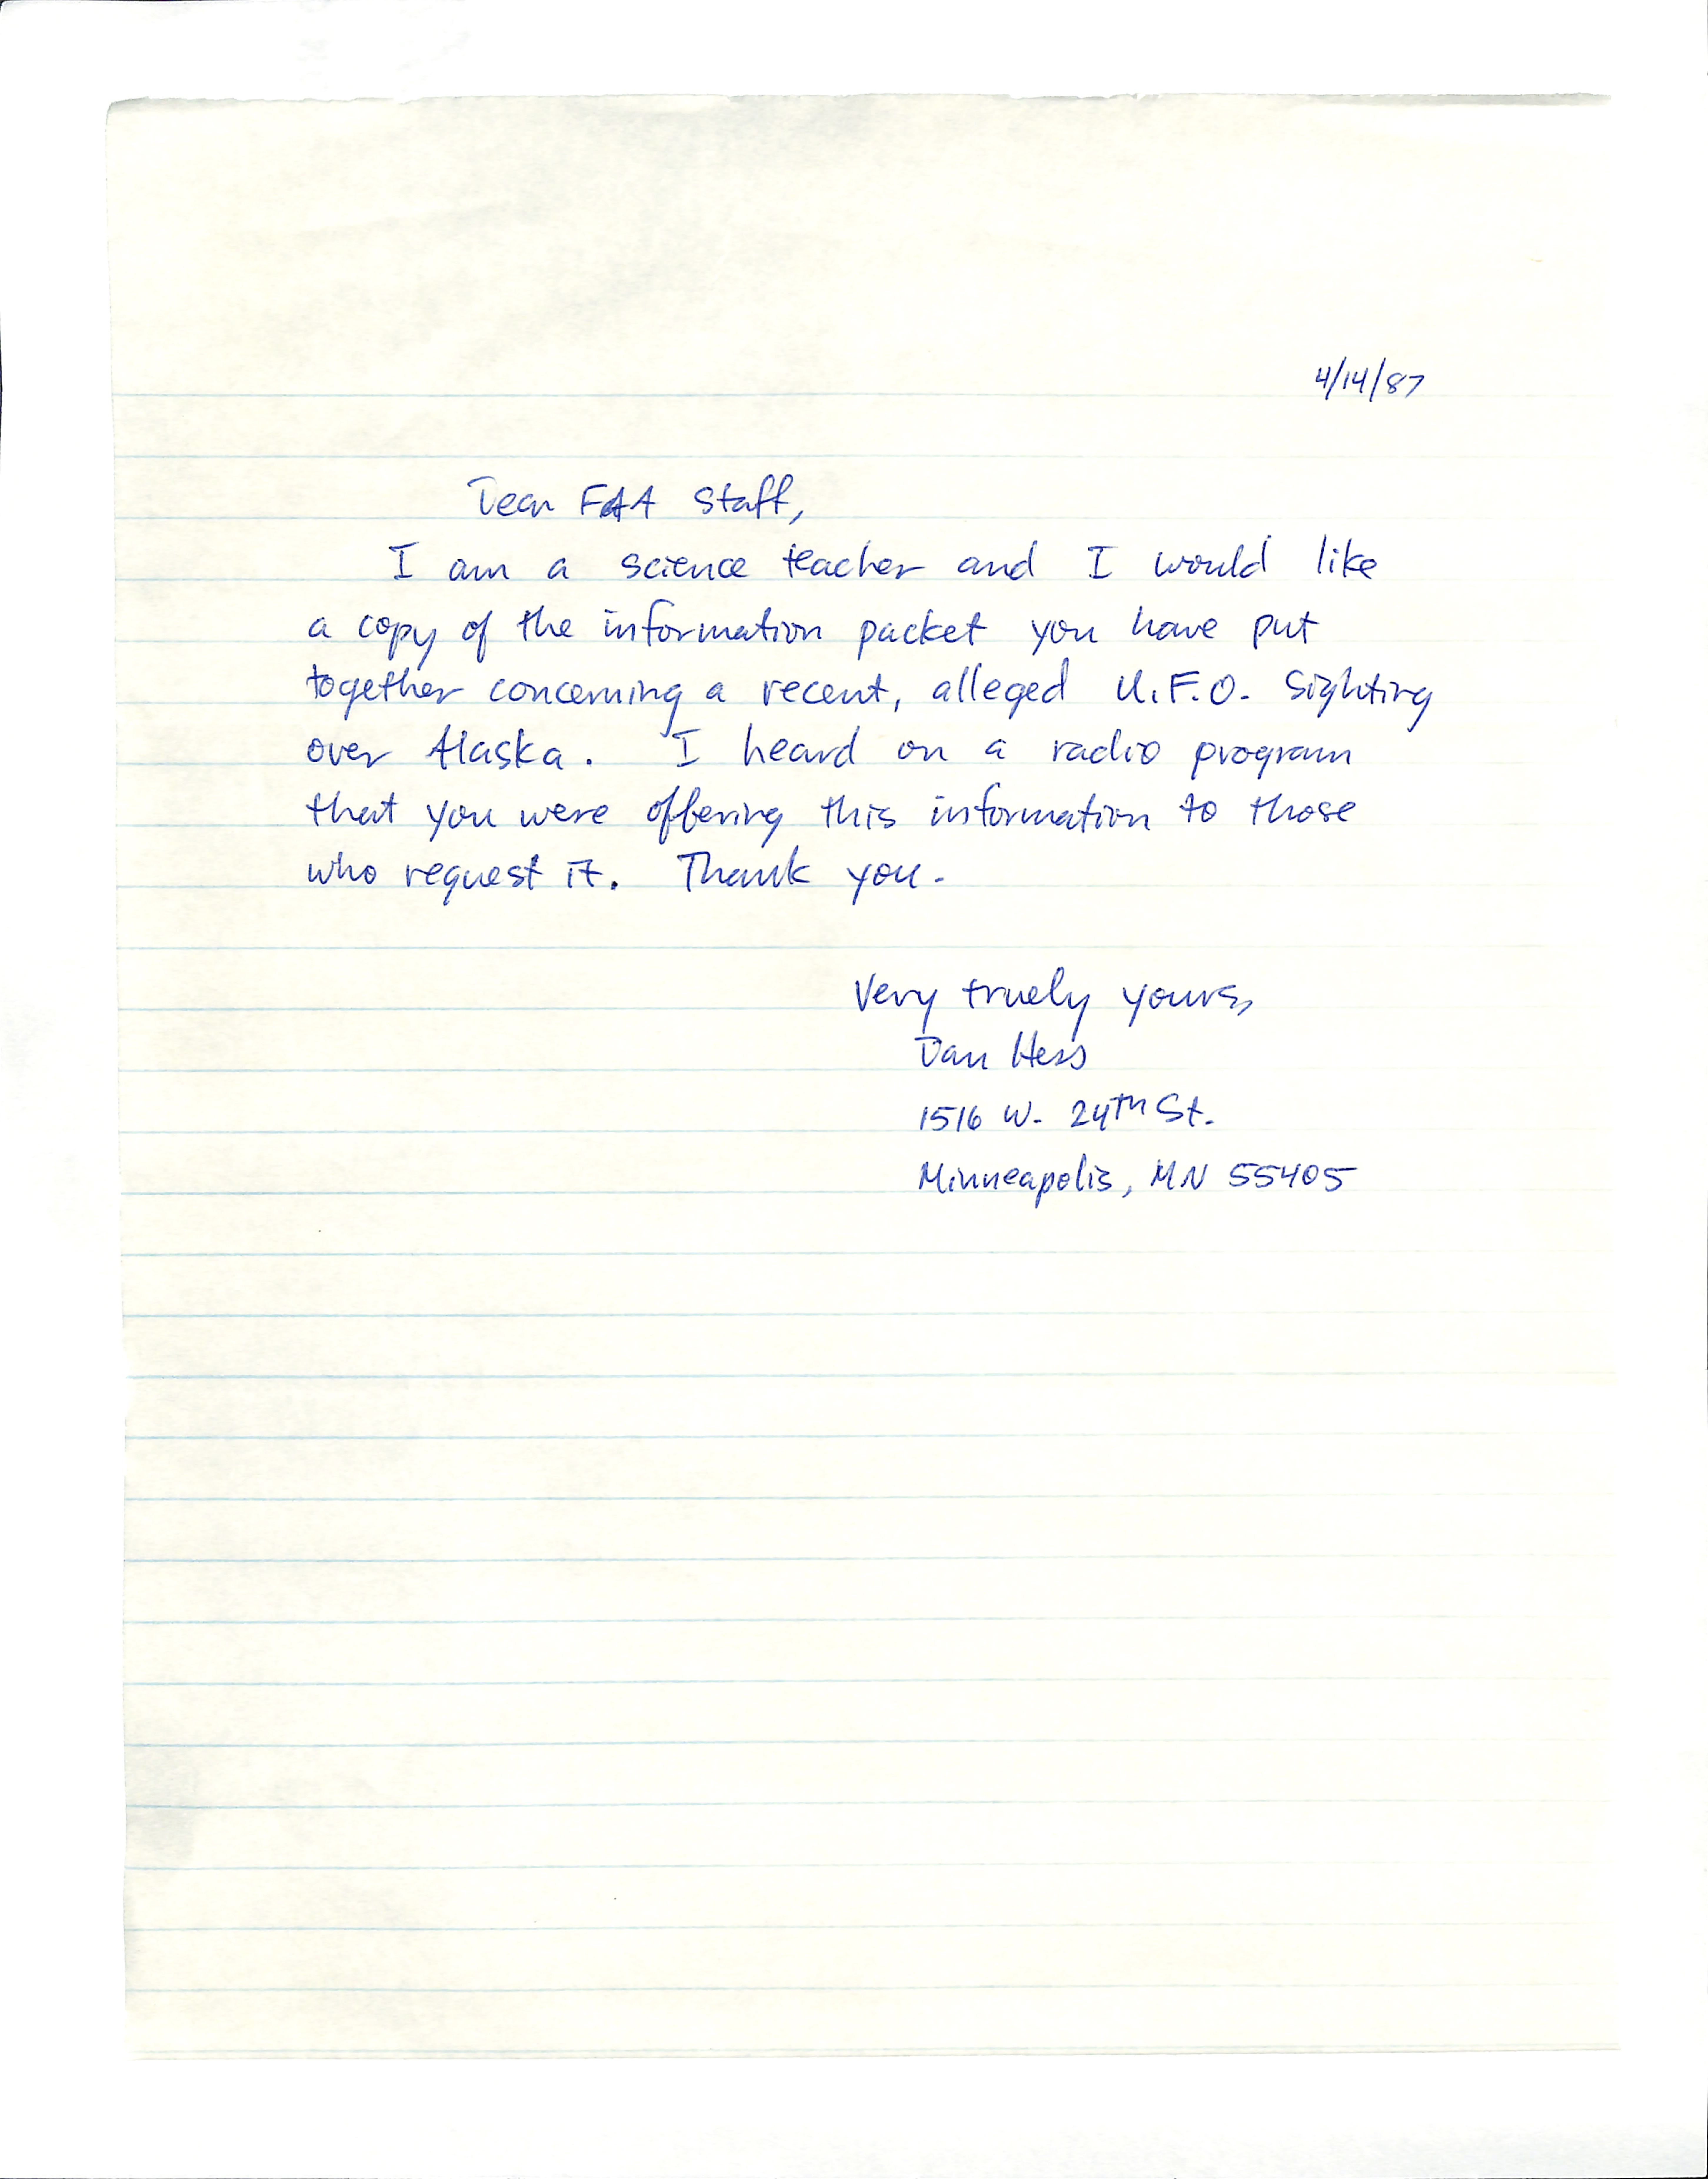 4/14/87
Dear FAA Staff,
I am a science teacher and I would like
a copy of the information packet you have put
together concerning a recent, alleged U.F.O. sighting
over Alaska. I heard on a radio program
that you were offering this information to those
who request it. Thank you.
Very truely yours,
Dan Hess
1516 W. 24TH St.
Minneapolis, MN 55405